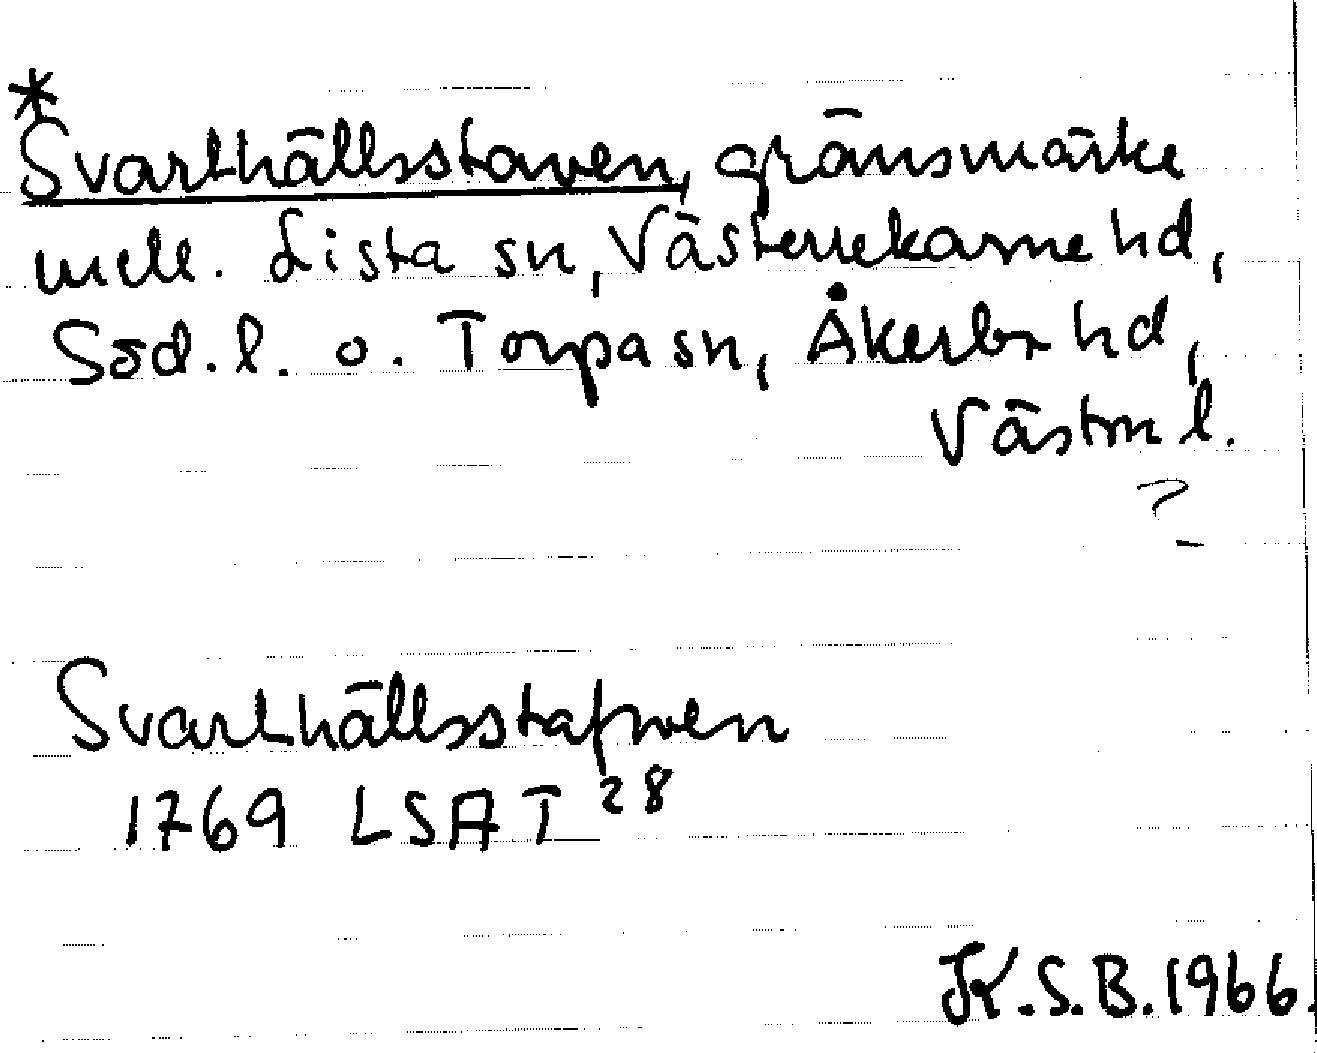 *
Svarthällsstaven, gränsmärke
mell. Lista sn, Västerrekarne hd,
Söd. l. o. Torpa sn, Åkerbo hd,
Västm l.
?
Svarthällsstafwen
1769 LSA T 28
K.S.B. 1966.